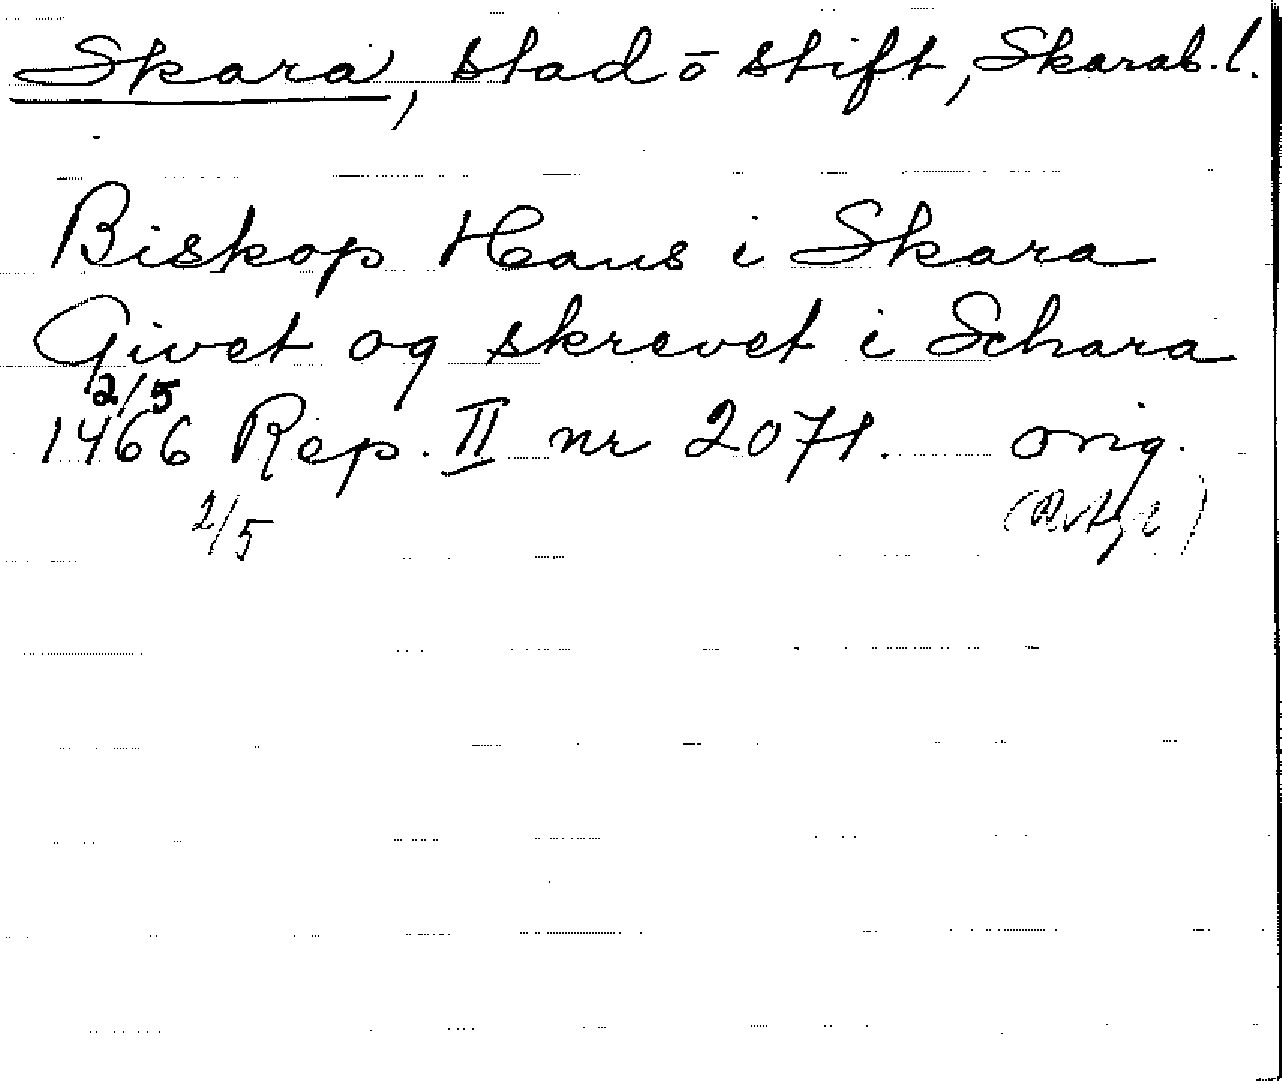 Skara, stad ō stift, Skarab. l.
Biskop Hans i Skara
Givet og skrevet i Schara
2/5
1466 Rep. II nr 2071. orig.
2/5